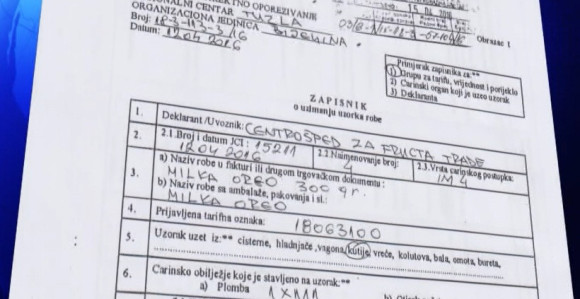 REKTNO OPOREZIVANJE
ONALNI CENTAR TUZLA
ORGANIZACIONA JEDINICA BIJELJINA
Broj: 18-3-113-3/16
Datum: 19.04.2016
15. 04. 2016
Obrazac 1
Primjerak zapisnika za:**
1) Grupu za tarifu, vrijednost i porijeklo
2) Carinski organ koji je uzeo uzorak
3) Deklaranta
ZAPISNIK
o uzimanju uzorka robe
1. Deklarant /Uvoznik: CENTROŠPED ZA FRUCTA TRADE
2. 2.1.Broj i datum JCI: 15211 2.2.Naimenovanje broj: 4 2.3.Vrsta carinskog postupka: IM 4
18.04.2016
3. a) Naziv robe u fakturi ili drugom trgovačkom dokumentu:
MILKA OREO 300 gr.
b) Naziv robe sa ambalaže, pakovanja i sl.:
MILKA OREO
4. Prijavljena tarifna oznaka: 18063100
5. Uzorak uzet iz:** cisterne, hladnjače ,vagona, kutije, vreće, kolutova, bala, omota, bureta,
6. Carinsko obilježje koje je stavljeno na uzorak:**
a) Plomba